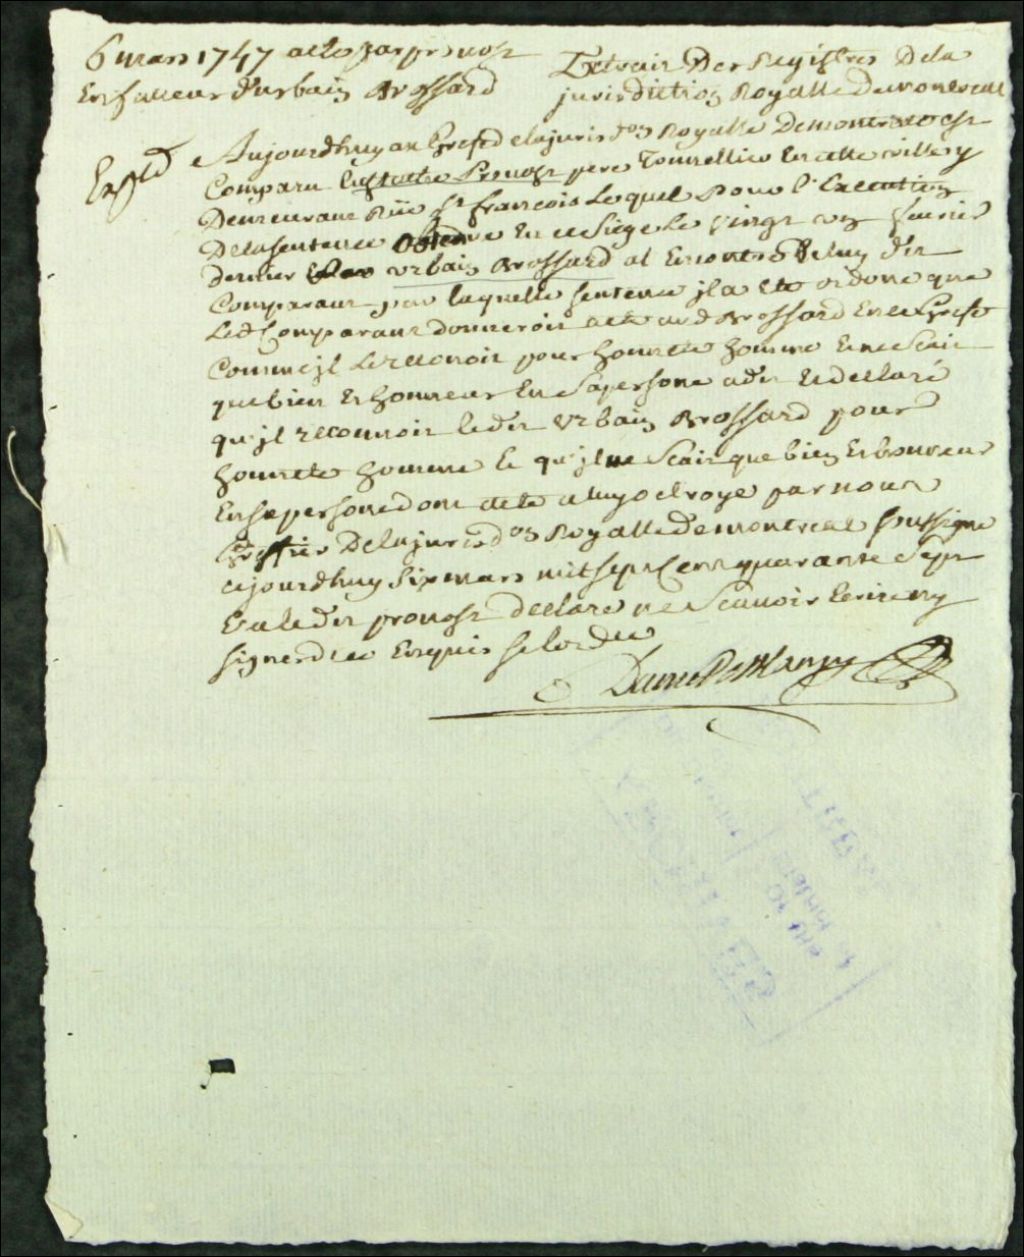 6 mars 1747 acte par prevost
En faveur d'urbain Brossard
Extrait Des Registres De la
jurisdiction Royalle De montreal
Exp.ed
Aujourdhuy au Greffe de la jurisd.on Royalle De montreal est
Comparu Eustache Prevost pere Tonnellier En cette ville y
Demeurant Rüe St francois Lequel Pour l'Execution
De la sentence obtenue En ce siege Le vingt un fevrier
dernier urbain Brossard al Encontre De luy dit
Comparant par laquelle sentence jl a ete ordoné que
Led Comparant donneroit acte aud Brossard En ce Greffe
Comme jl Le reconoit pour honnete homme Et ne Scait
que bien Et honneur En Sa persone a dit Et declaré
qu'jl reconnoit ledit Urbain Brossard pour
honnete homme Et qu'jl ne Scait que bien Et honneur
En sa persone dont acte a luy octroyé par nous
Greffier De la jurisd.on Royalle de montreal soussigné
cejourdhuy Six mars mil sept Cent quarante Sept
Et a ledit prevost declaré ne Scavoir Ecrire ny
signer de ce Enquis selon lord.ce
Danré De Blanzy